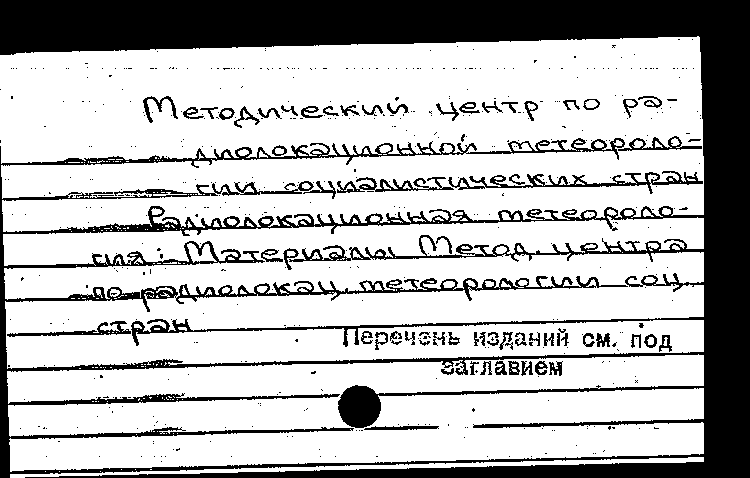 Методический центр по ра-
диолокационной метеороло-
гии социалистических стран
Радиолокационная метеороло-
гия: Материалы Метод. центра
по радиолокац. метеорологии соц.
стран
Перечень изданий см. под
заглавием